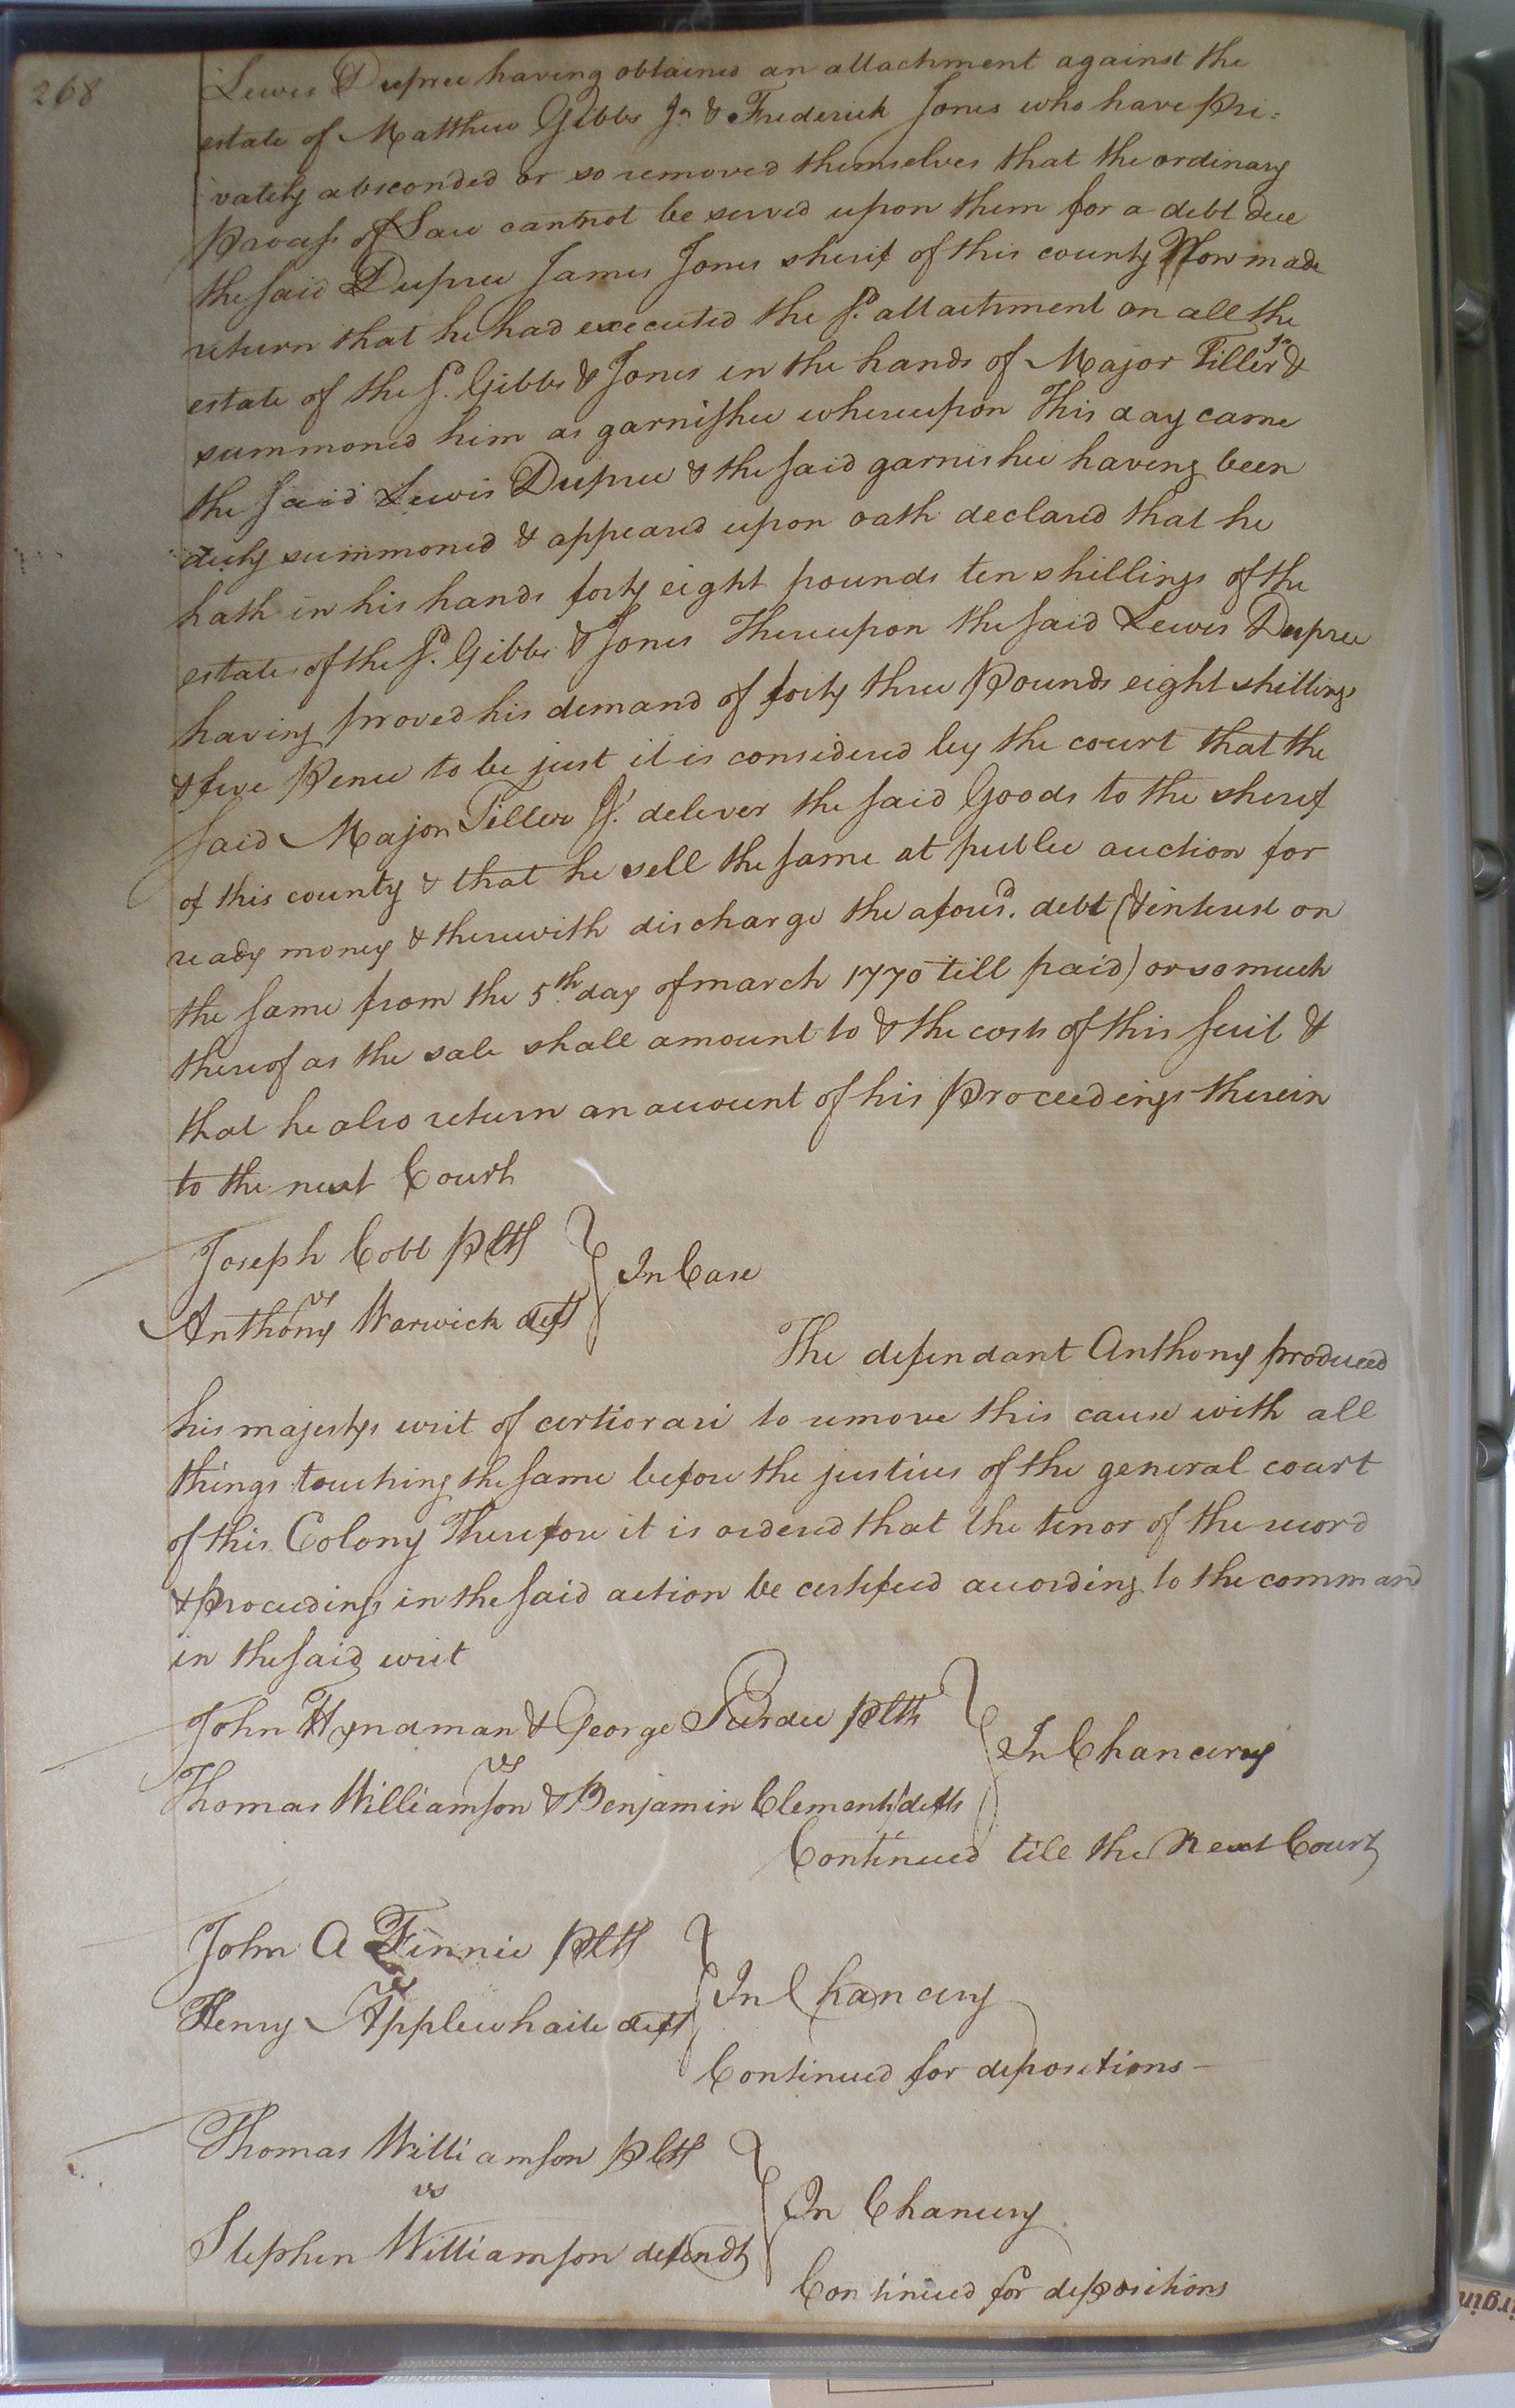 268
Lewis Dupree having obtained an attachment against the
estate of Matthew Gibbs Jr & Frederick Jones who have Pri=
vately absconded or so removed themselves that the ordinary
Process of Law cannot be served upon them for a debt due
the said Dupree James Jones sherif of this county Now made
return that he had executed the sd. attachment on all the
estate of the sd. Gibbs & Jones in the hands of Major Tiller Jr &
summoned him as garnishee whereupon This day came
the said Lewis Dupree & the said garnishee having been
duly summoned & appeard upon oath declard that he
hath in his hands forty eight pounds ten shillings of the
estates of the sd. Gibbs & Jones Thereupon the said Lewis Dupree
having proved his demand of forty three Pounds eight shillings
& five Pence to be just it is considered by the court that the
said Major Tiller Jr. deliver the said Goods to the sherif
of this county & that he sell the same at public auction for
ready money & therewith discharge the afores.d debt (& interest on
the same from the 5th day of march 1770 till paid) or so much
thereof as the sale shall amount to & the costs of this suit &
that he also return an account of his Proceedings therein
to the next Court
Joseph Cobb Pltf
vs
In Case
Anthony Warwick deft
The defendant Anthony produced
his majestys writ of certiorari to remove this cause with all
things touching the same before the justices of the general court
of this Colony Therefore it is ordered that the tenor of the record
& Proceedings in the said action be certifeed according to the command
in the said writ
John Hyndman & George Purdie Plts
vs
In Chancery
Thomas Williamson & Benjamin Clements defts
Continued till the Next Court
John A Finnie Pltf
vs
In Chancery
Henry Applewhaite deft
Continued for depositions
Thomas Williamson Pltf
vs
In Chancery
Stephen Williamson defendt
Continued for depositions